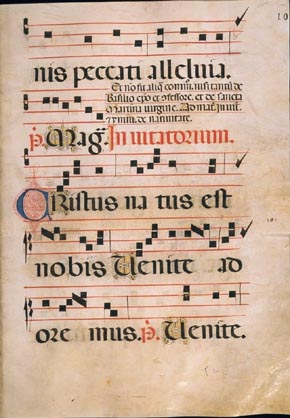 10
nis peccati alleluia.
Et no fit aliq̄ comm. nisi tantū de
Basilio ep̄o et ɔfessore. et de sancta
Maria uirgine. Ad mat. inuit.
de natiuitate.
p̄. Mag̃. Inuitatorium.
CRistus na tus est
nobis Uenite ad
ore mus. p̄. Uenite.